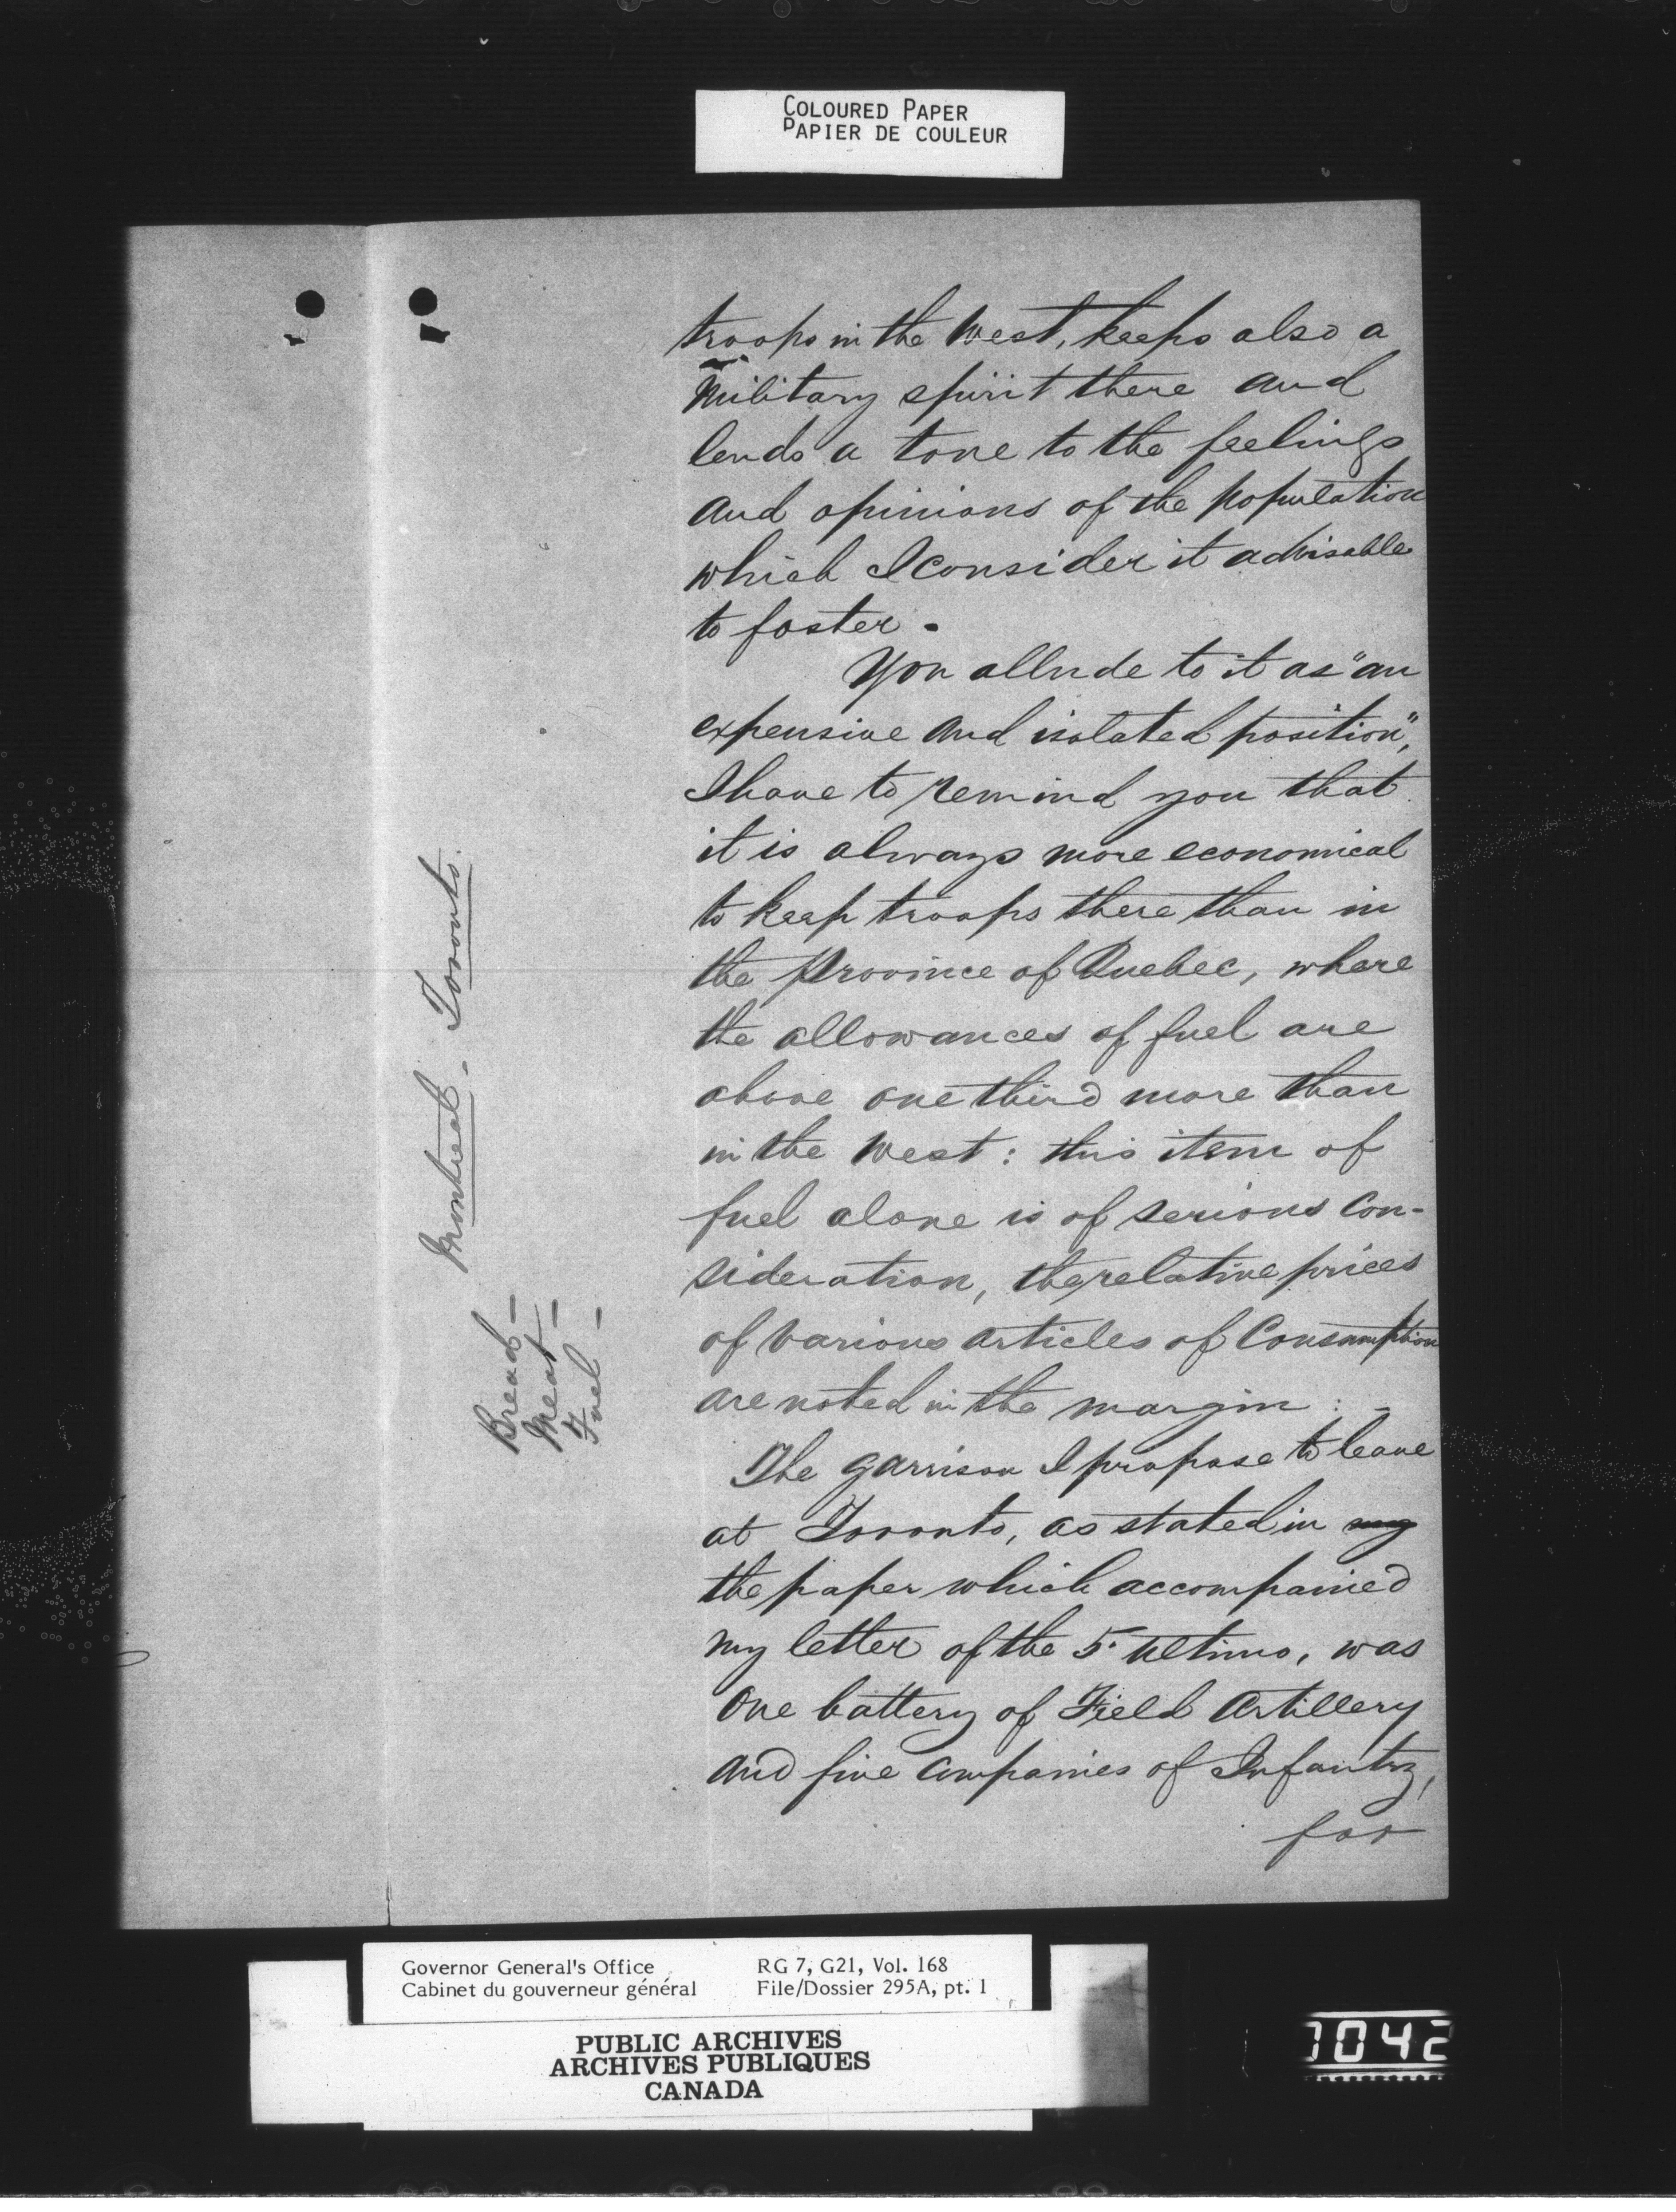 COLOURED PAPER
PAPIER DE COULEUR
troops in the West, keeps also a
Military spirit there and
lends a tone to the feelings
and opinions of the population
which I consider it advisable
to foster.
You allude to it as "an
expensive and isolated position",
I have to remind you that
it is always more economical
to keep troops there than in
the Province of Quebec, where
the allowances of fuel are
above one third more than
in the West: this item of
fuel alone is of serious con-
sideration, the relative prices
of various articles of Consumption
are noted in the margin :-
Montreal. Toronto.
Bread -
Meat -
Fuel -
The garrison I propose to leave
at Toronto, as stated in my
the paper which accompanied
my letter of the 5 ultimo, was
One battery of Field Artillery
and five Companies of Infantry,
for
Governor General's Office
Cabinet du gouverneur général
RG 7, G21, Vol. 168
File/Dossier 295A, pt. 1
PUBLIC ARCHIVES
ARCHIVES PUBLIQUES
CANADA
1042